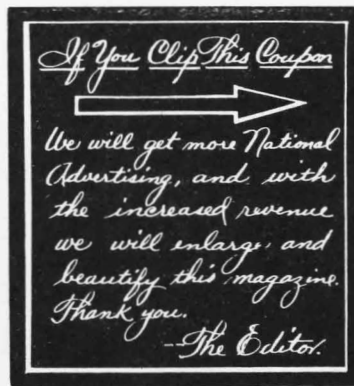 If You Clip This Coupon
We will get more National
Advertising, and with
the increased revenue
we will enlarge, and
beautify this magazine.
Thank you.
--The Editor.